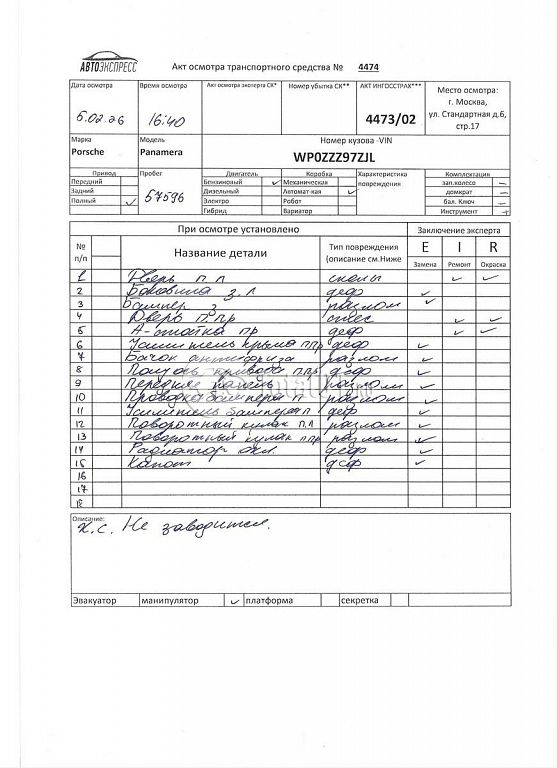 АВТОЭКСПРЕСС
Акт осмотра транспортного средства № 4474
Дата осмотра Время осмотра Акт осмотра эксперта СК* Номер убытка СК** АКТ ИНГОССТРАХ*** Место осмотра:
г. Москва,
5.02.26 16:40 4473/02 ул. Стандартная д.6,
стр.17
Марка Модель Номер кузова -VIN
Porsche Panamera WP0ZZZ97ZJL
Привод Пробег Двигатель Коробка передач Характеристика повреждения Комплектация
Передний 57596 Бензиновый ✓ Механическая зап.колесо –
Задний Дизельный Автомат-кая ✓ домкрат –
Полный ✓ Электро Робот бал. Ключ –
Гибрид Вариатор Инструмент –
При осмотре установлено Заключение эксперта
№ п/п Название детали Тип повреждения (описание см.Ниже E I R
Замена Ремонт Окраска
1 Дверь п л сколы ✓ ✓
2 Боковина з. Л деф ✓
3 Бампер з разлом ✓
4 Дверь п.пр ✓ ✓
5 А-стойка пр деф ✓ ✓
6 Усилитель крыла п пр деф ✓
7 Бачок антифриза разлом ✓
8 Полуось привода п.пр деф ✓
9 Передняя панель разлом ✓
10 Проводка бампера п разлом ✓
11 Усилитель бампера п деф ✓
12 Поворотный кулак п.л разлом ✓
13 Поворотный кулак п пр разлом ✓
14 Радиатор охл. деф ✓
15 Капот деф ✓
16
17
18
Описание:
Х.С. Не заводится.
Эвакуатор манипулятор ✓ платформа секретка